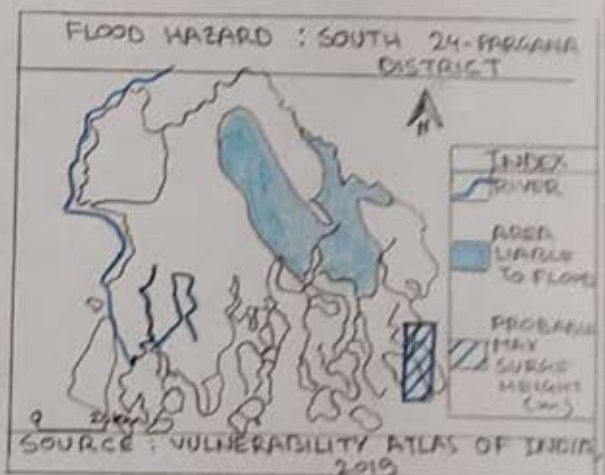 FLOOD HAZARD : SOUTH 24-PARGANA
DISTRICT
N
INDEX
RIVER
AREA
LIABLE
TO FLOOD
PROBABLE
MAX
SURGE
HEIGHT
(m)
0
SOURCE : VULNERABILITY ATLAS OF INDIA
2019